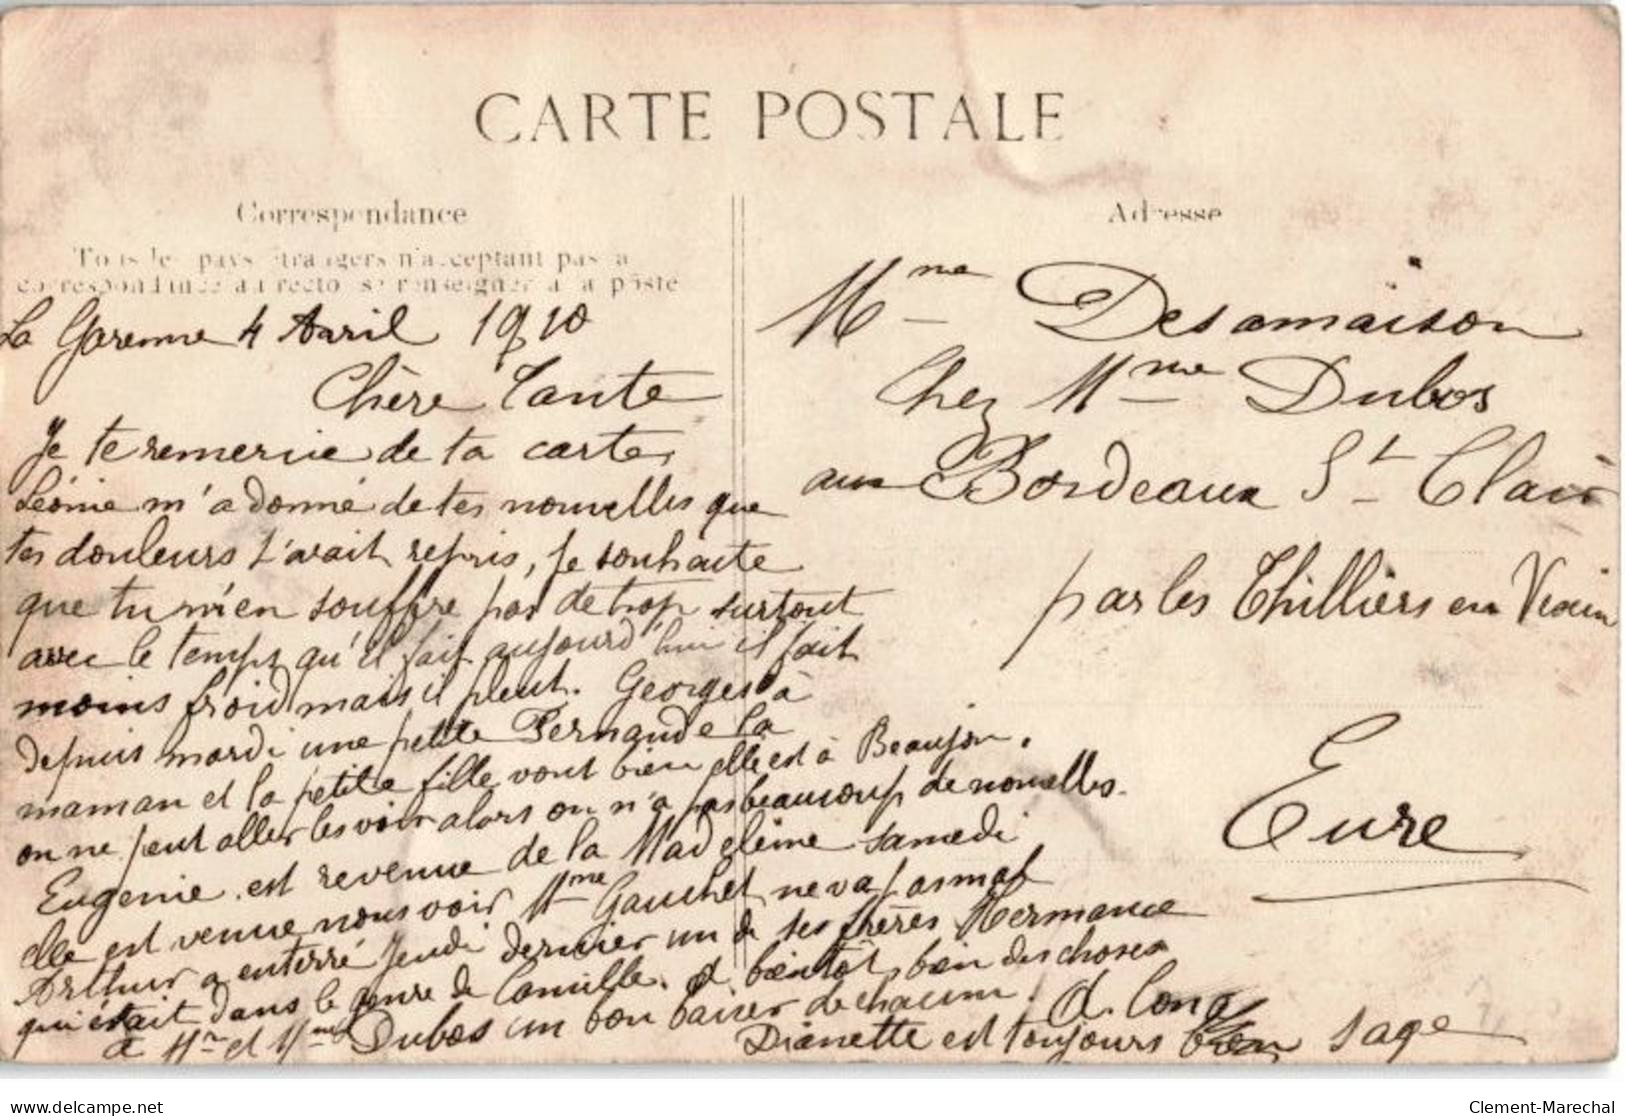 CARTE POSTALE
Correspondance
Tous les pays étrangers n'acceptant pas la
correspondance au recto, se renseigner à la poste
La Garenne 4 Avril 1910
Chère Tante
Je te remercie de ta carte,
Léonie m'a donné de tes nouvelles que
tes douleurs t'avait repris, je souhaite
que tu n'en souffre pas de trop surtout
avec le temps qu'il fait aujourd'hui il fait
moins froid mais il pleut. Georges à
depuis mardi une petite Fernande la
maman et la petite fille vont bien elle est à Beaujon.
on ne peut aller les voir alors on n'a pas beaucoup de nouvelles.
Eugenie est revenue de la Madeleine samedi
elle est venue nous voir Mme Gauchet ne va pas mal
Arthur a enterré Jeudi dernier un de ses frères Hermance
qui était dans le genre de Camille. à bientôt, bien des choses
à Mr et Mme Dubos un bon baiser de chacun.
Dianette est toujours bien sage
Adresse
Mme Desamaison
Chez Mme Dubos
aux Bordeaux St Clair
par les Thilliers en Vexin
Eure
Clement-Marechal
delcampe.net